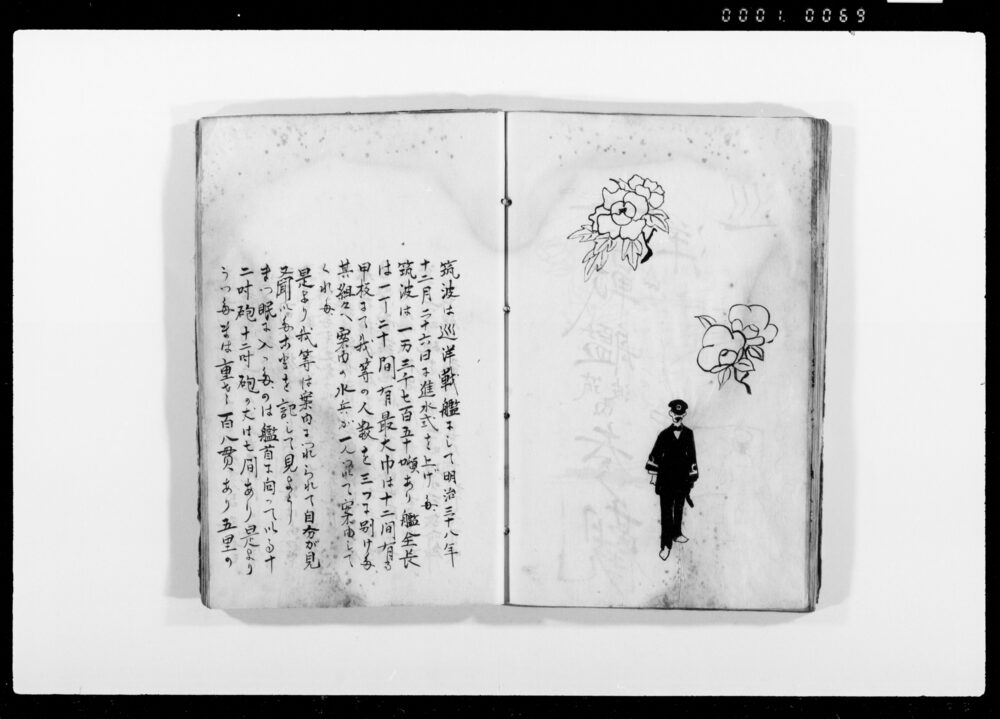 0001. 0069
筑波は巡洋戦艦にして明治三十八年
十二月二十六日に進水式を上げた
筑波は一万三千七百五十噸あり艦全長
は一丁二十間有最大巾は十二間有る
甲板にて我等の人数を三つに別けた
其組々へ案内の水兵が一人つれて案内して
くれた
是より我等は案内につれられて自分が見
又聞いたことを記して見よう
まづ眼に入ったのは艦首に向っている十
二吋砲十二吋砲の丈は七間あり是より
うつたまは重さ百八貫あり五里の